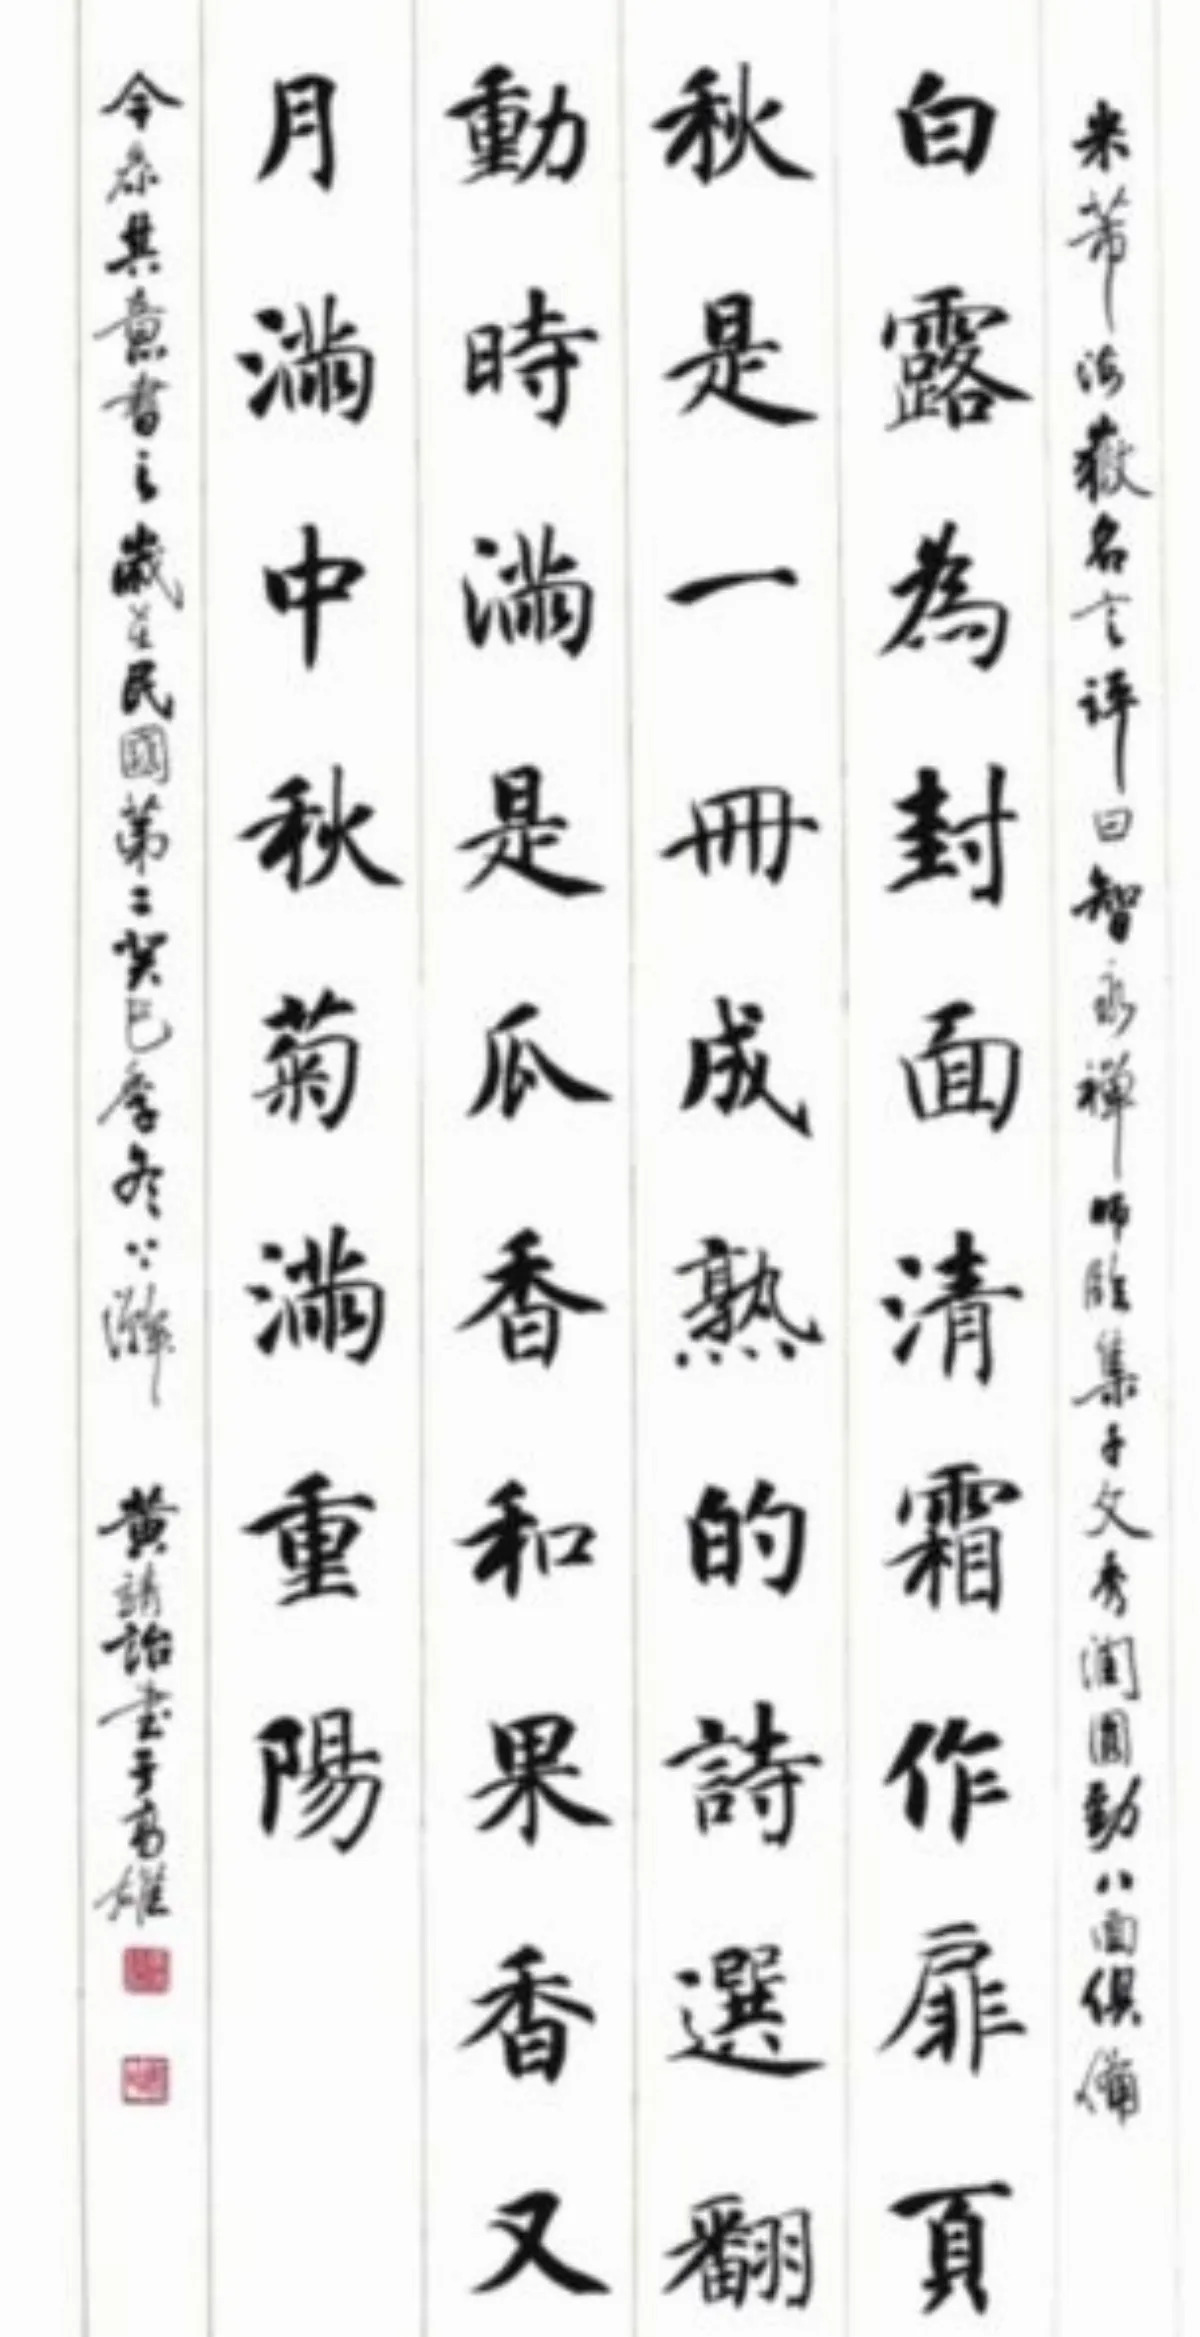 米芾海嶽名言評曰智永禪師臨集千文秀潤圓勁八面俱備
白露為封面清霜作扉頁
秋是一冊成熟的詩選翻
動時滿是瓜香和果香又
月滿中秋菊滿重陽
今參其意書之歲在民國第二癸巳季冬
黃靖詒書于高雄